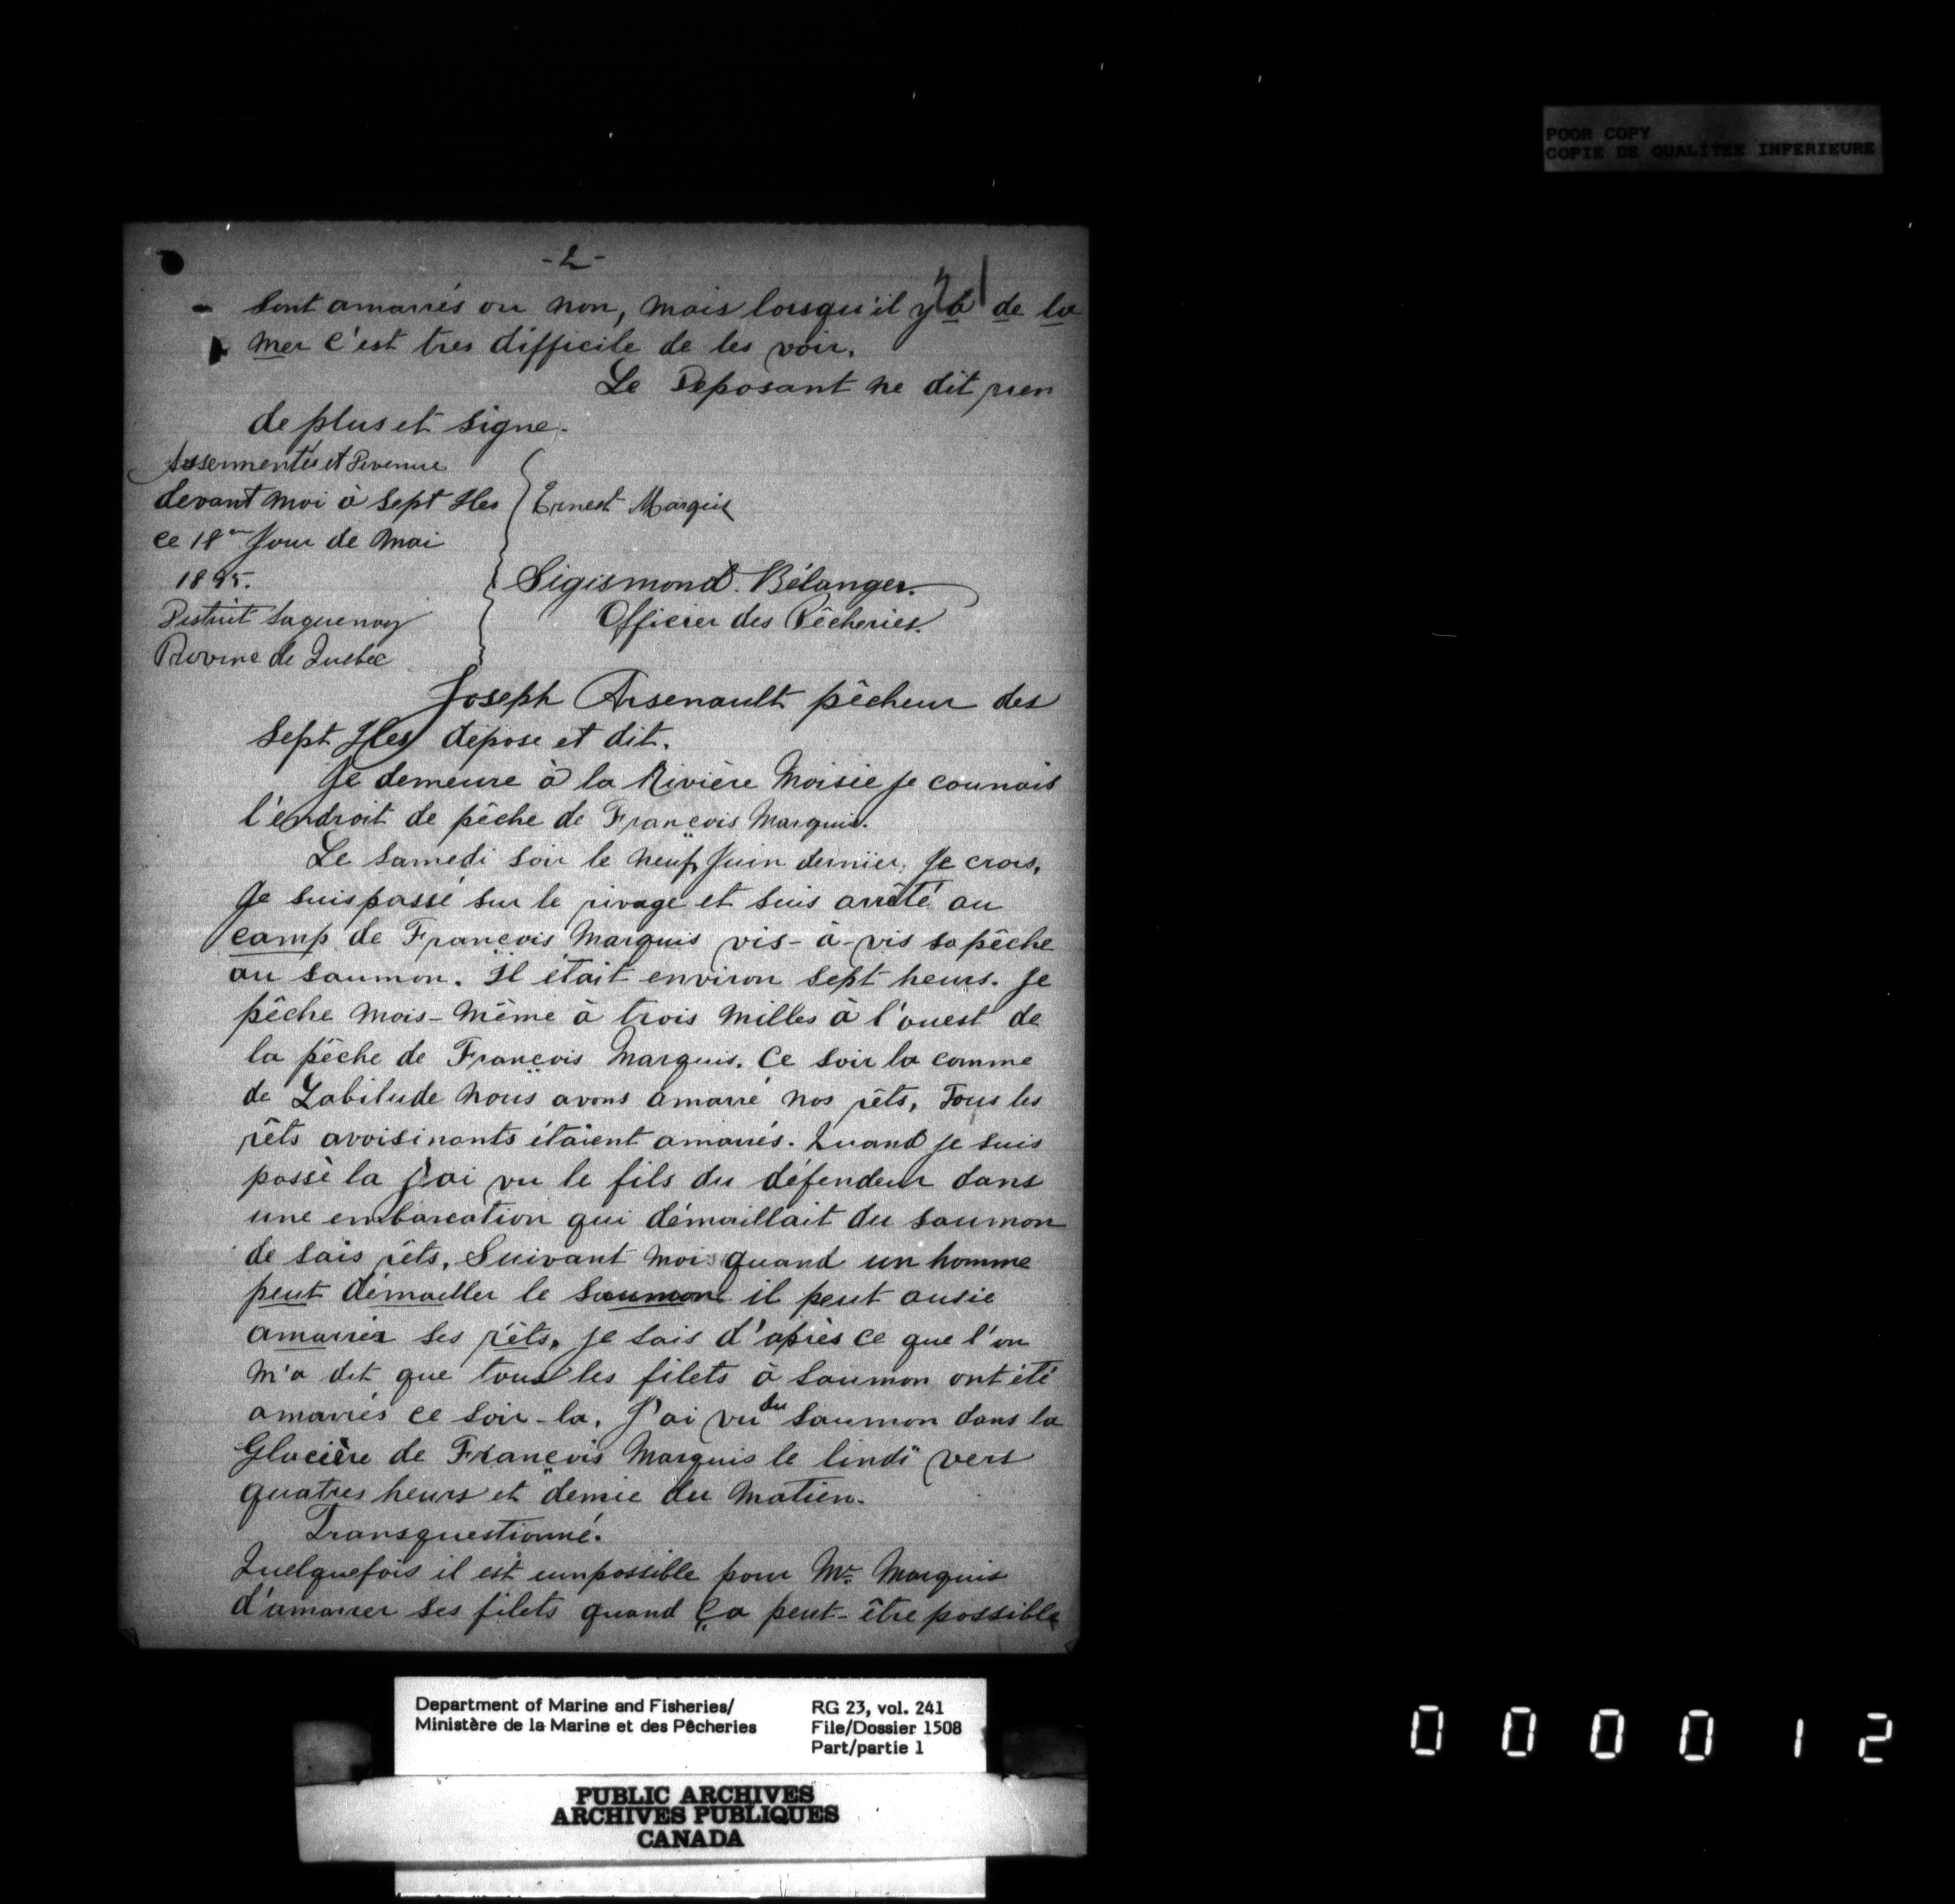 POOR COPY
COPIE DE QUALITEE INFERIEURE
-2-
21
sont amarrés ou non, mais lorsqu'il y a de la
mer c'est tres difficile de les voir.
Le Deposant ne dit rien
de plus et signe.
Assermentés et Devenue
devant moi à Sept Iles
ce 18 Jour de Mai
1895.
Ernest Marquis
Sigismond Bélanger.
Officier des Pêcheries.
District Saguenay
Provine de Quebec
Joseph Arsenault pêcheur des
Sept Iles dépose et dit.
Je demeure à la Rivière Moisie je connais
l'endroit de pêche de François Marquis.
Le samedi soir le neuf Juin dernier, Je crois,
Je suis passé sur le rivage et suis arrêté au
camp de François Marquis vis-à-vis sa pêche
au saumon. Il était environ sept heurs. Je
pêche mois-même à trois milles à l'ouest de
la pêche de François Marquis. Ce soir la comme
de Labitude nous avons amarré nos rêts, Tous les
rêts avoisinants étaient amarrés. Quand je suis
passé la j'ai vu le fils du défendeur dans
une embarcation qui démaillait du saumon
de sais rêts, Suivant moi quand un homme
peut démailler le saumon il peut ausie
amarrer ses rêts, je sais d'après ce que l'on
m'a dit que tous les filets à saumon ont été
amarrés ce soir-la. J'ai vu du saumon dans la
Glacière de François Marquis le lindi vers
quatres heurs et demie du matien.
Transquestionné.
Quelquefois il est eumpossible pour Mr. Marquis
d'amarrer ses filets quand ça peut-être possible
Department of Marine and Fisheries/
Ministère de la Marine et des Pêcheries
RG 23, vol. 241
File/Dossier 1508
Part/partie 1
PUBLIC ARCHIVES
ARCHIVES PUBLIQUES
CANADA
000012